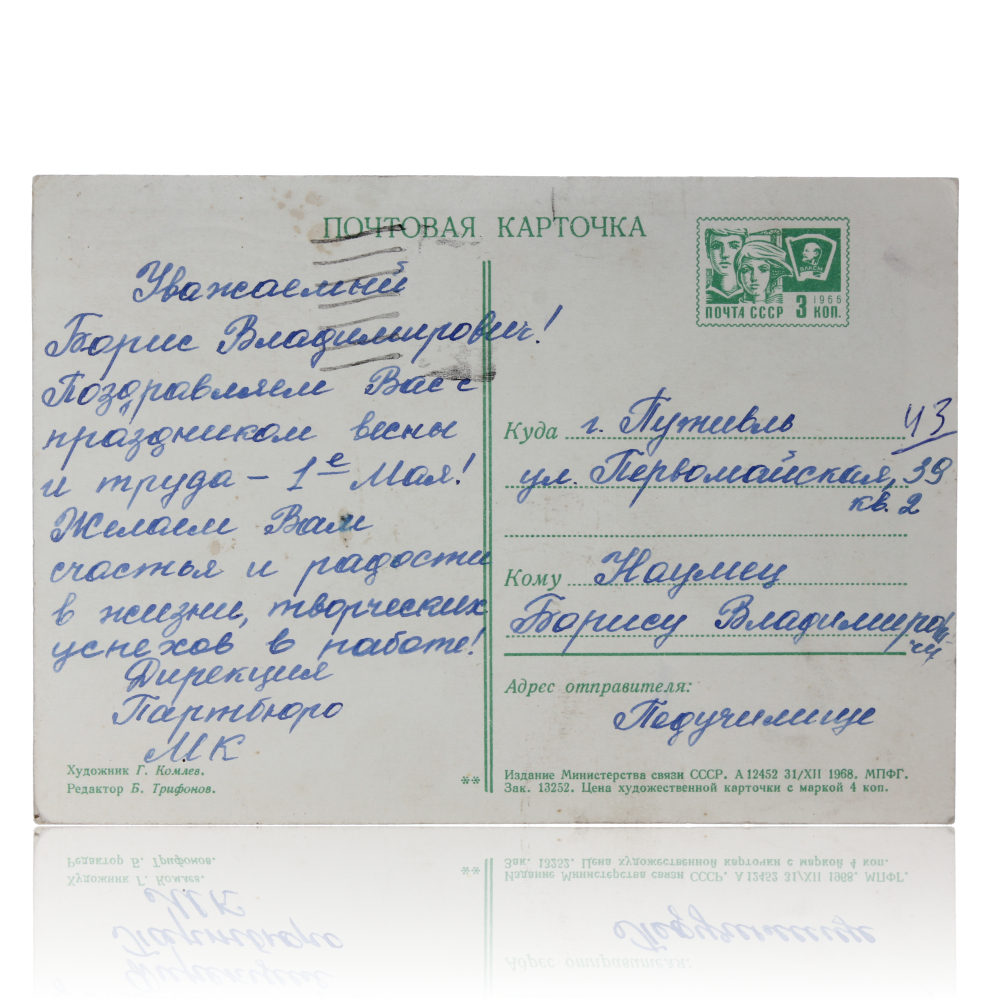 ПОЧТОВАЯ КАРТОЧКА
ВЛКСМ
1966
ПОЧТА СССР 3 КОП.
Уважаемый
Борис Владимирович!
Поздравляем Вас с
праздником весны
и труда - 1е Мая!
Желаем Вам
счастья и радости
в жизни, творческих
успехов в работе!
Дирекция
Партбюро
МК
Художник Г. Комлев.
Редактор Б. Трифонов.
**
Куда г. Путивль
ул. Первомайская, 39
кв. 2
Кому Наумец
Борису Владимирови
чу
Адрес отправителя:
Педучилище
Издание Министерства связи СССР. А 12452 31/XII 1968. МПФГ.
Зак. 13252. Цена художественной карточки с маркой 4 коп.